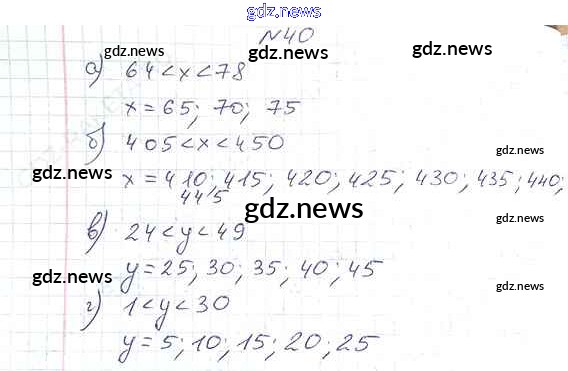 gdz.news
N40
gdz.news gdz.news gdz.news
а) 64 < x < 78
x = 65; 70; 75
б) 405 < x < 450
gdz.news
gdz.news x = 410; 415; 420; 425; 430; 435; 440;
445
gdz.news gdz.news
в) 24 < y < 49
y = 25; 30; 35; 40; 45
gdz.news gdz.news
г) 1 < y < 30
y = 5; 10; 15; 20; 25
gdz.news gdz.news